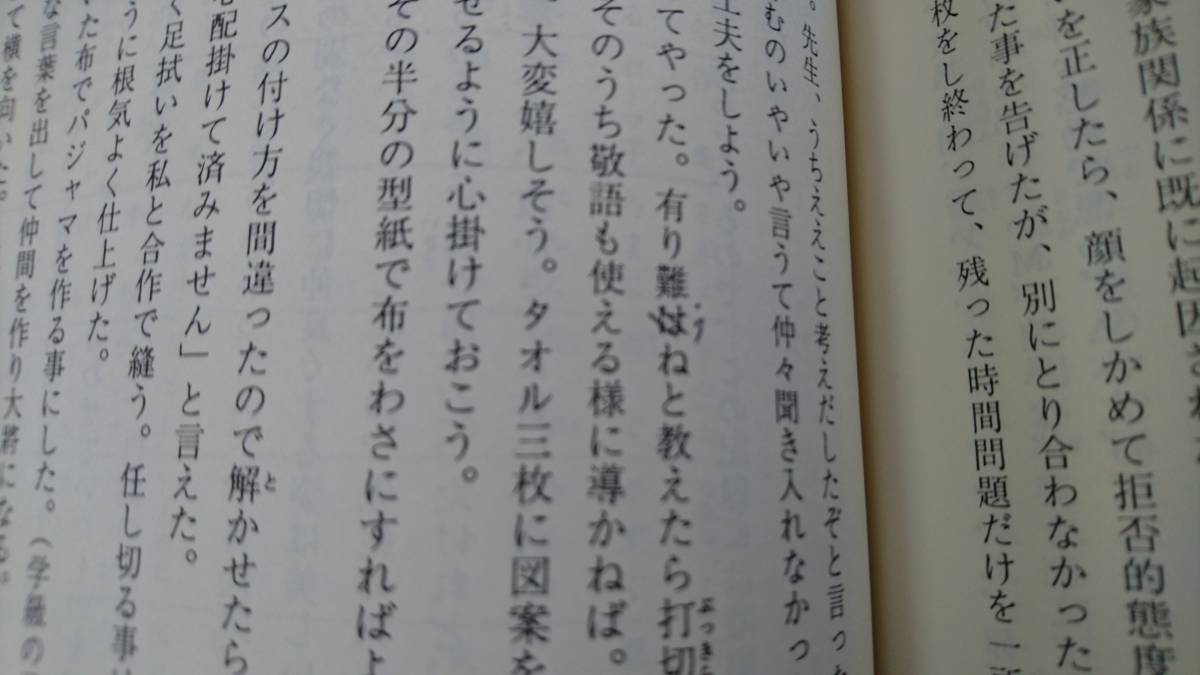 家族関係に既に起因さ
を正したら、顔をしかめて拒否的態度
た事を告げたが、別にとり合わなかった
枚をし終わって、残った時間問題だけを一
。先生、うちええこと考えだしたぞと言っ
むのいやいや言うて仲々聞き入れなかっ
工夫をしよう。
てやった。有り難はねと教えたら打切
う
ぶっきら
そのうち敬語も使える様に導かねば。
。大変嬉しそう。タオル三枚に図案を
せるように心掛けておこう。
その半分の型紙で布をわさにすればよ
スの付け方を間違ったので解かせたら
と
配掛けて済みません」と言えた。
く足拭いを私と合作で縫う。任し切る事は
うに根気よく仕上げた。
た布でパジャマを作る事にした。
な言葉を出して仲間を作り大將になる。
て横を向いた。